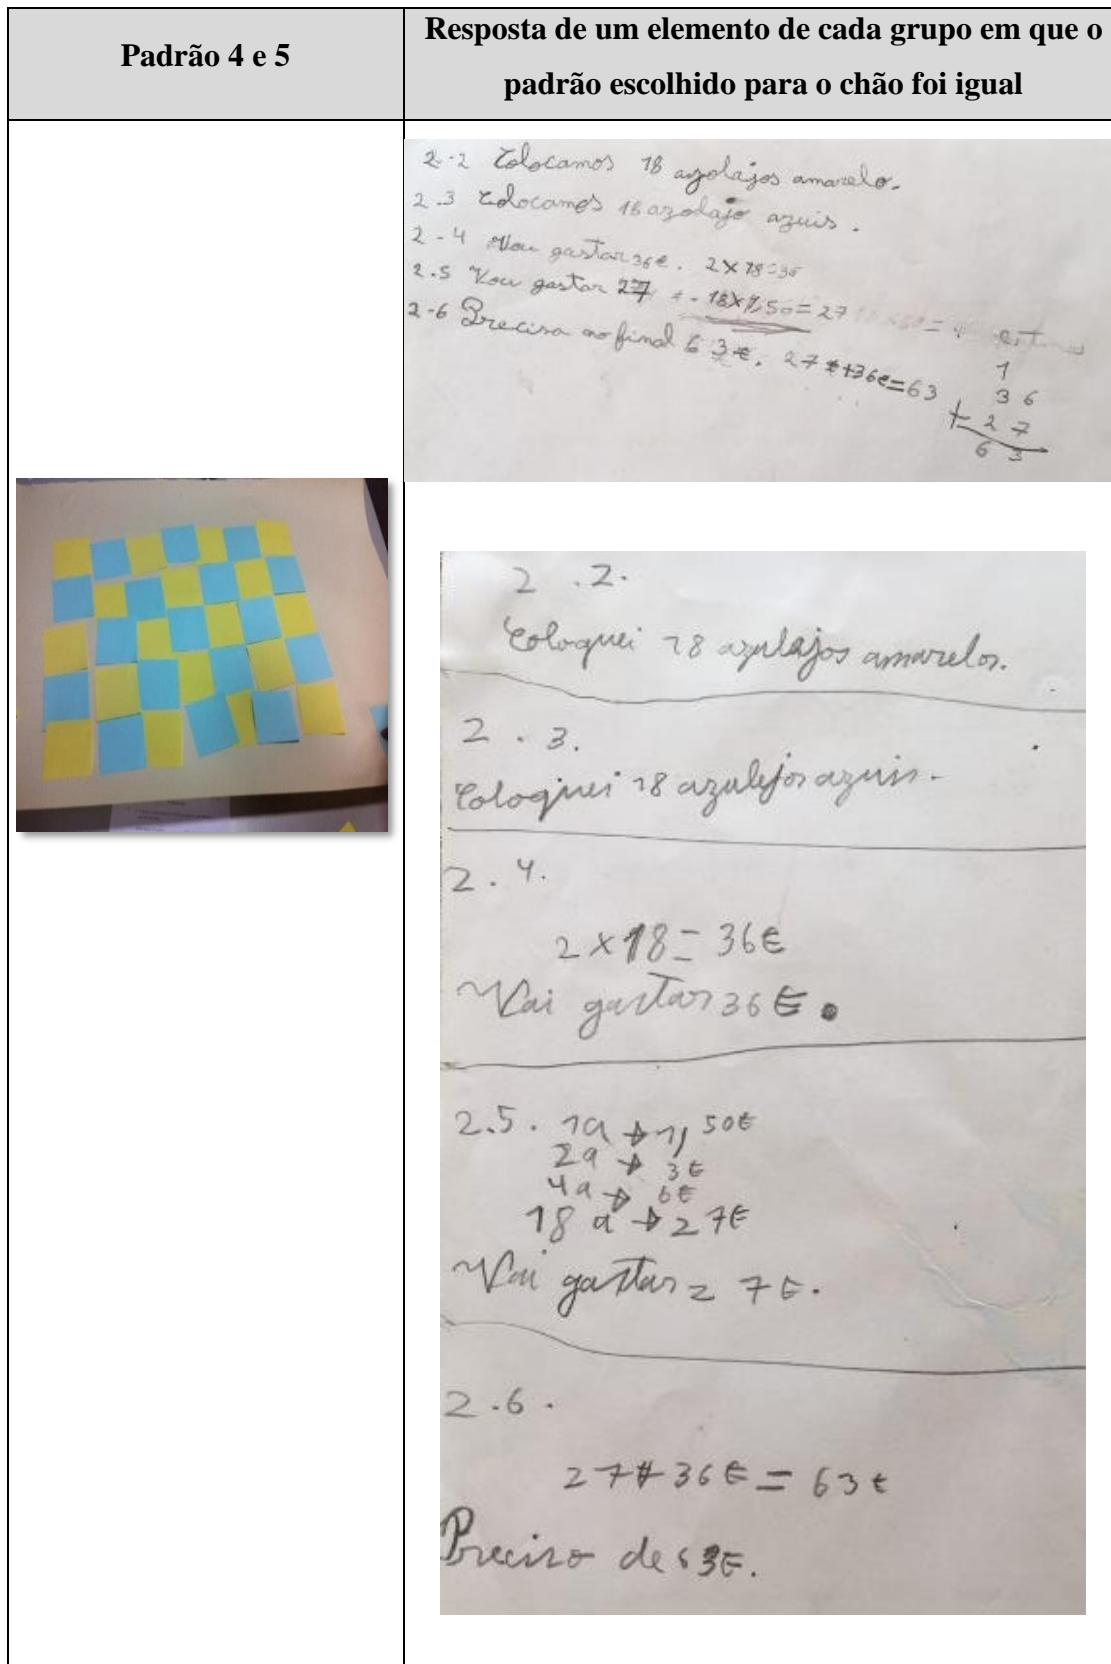 Padrão 4 e 5
Resposta de um elemento de cada grupo em que o
padrão escolhido para o chão foi igual
2.2 Colocamos 18 azolajos amarelo.
2.3 Colocamos 18 azolajo azuis.
2-4 Vou gastar 36€. 2×18=36
2.5 Vou gastar 27 18×1,50=27
2-6 Precisa no final 63€. 27€+36€=63
1
36
+27
63
2.2.
Coloquei 18 azulajos amarelos.
2.3.
Coloquei 18 azulejos azuis.
2.4.
2×18=36€
Vai gastar 36€.
2.5. 1a → 1,50€
2a → 3€
4a → 6€
18a → 27€
Vai gastar 27€.
2.6.
27+36€=63€
Preciso de 63€.